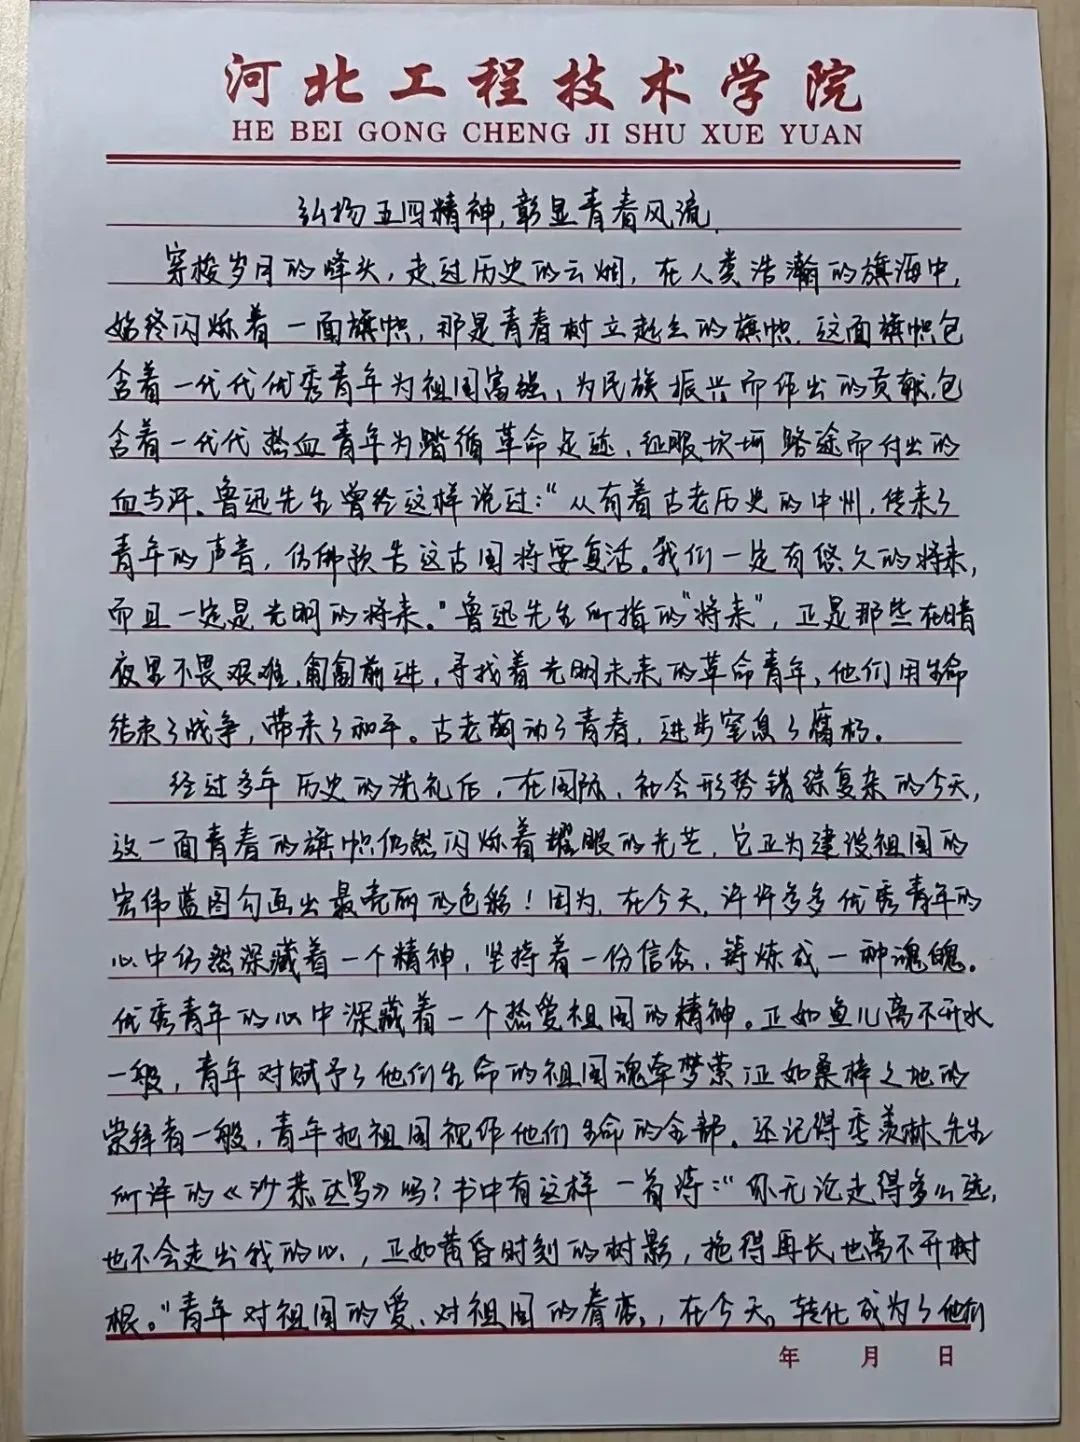 河北工程技术学院
HE BEI GONG CHENG JI SHU XUE YUAN
弘扬五四精神,彰显青春风流.
穿梭岁月的烽头,走过历史的云烟,在人类浩瀚的旗海中,
始终闪烁着一面旗帜,那是青春树立起来的旗帜.这面旗帜包
含着一代代优秀青年为祖国富强,为民族振兴而作出的贡献,包
含着一代代热血青年为踏循革命足迹,征服坎坷路途而付出的
血与汗。鲁迅先生曾经这样说过:“从有着古老历史的中州,传来了
青年的声音,仿佛预告这古国将要复活。我们一定有悠久的将来,
而且一定是光明的将来。”鲁迅先生所指的“将来”,正是那些在暗
夜里不畏艰难,匍匐前进,寻找着光明未来的革命青年,他们用生命
结束了战争,带来了和平。古老萌动了青春,进步窒息了腐朽。
经过多年历史的洗礼后,在国际、社会形势错综复杂的今天,
这一面青春的旗帜仍然闪烁着耀眼的光芒,它正为建设祖国的
宏伟蓝图勾画出最亮丽的色彩!因为,在今天,许许多多优秀青年的
心中仍然深藏着一个精神,坚持着一份信念,铸炼成一种魂魄。
优秀青年的心中深藏着一个热爱祖国的精神。正如鱼儿离不开水
一般,青年对赋予了他们生命的祖国魂牵梦萦正如桑梓之地的
崇拜者一般,青年把祖国视作他们生命的全部。还记得季羡林先生
所译的《沙恭达罗》吗?书中有这样一首诗:“你无论走得多么远,
也不会走出我的心,正如黄昏时刻的树影,拖得再长也离不开树
根。”青年对祖国的爱、对祖国的眷恋,在今天,转化成为了他们
年 月 日